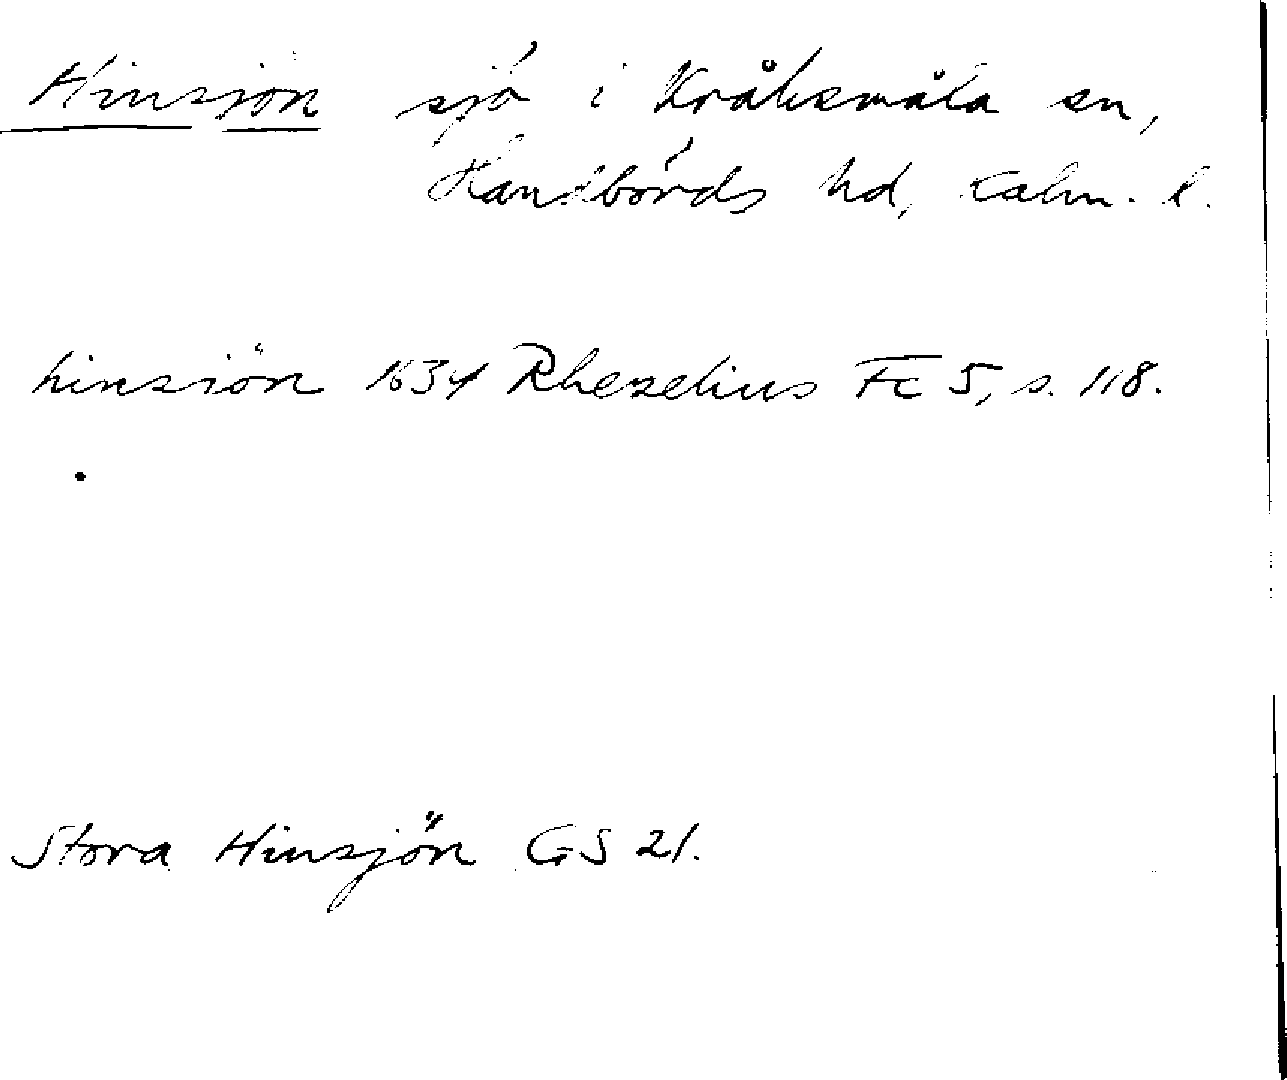 Hinsjön sjö i Kråksmåla sn,
Handbörds hd, Kalm. l.
hinsiön 1634 Rhezelius Fc 5, s. 118.
Stora Hinsjön GS 21.